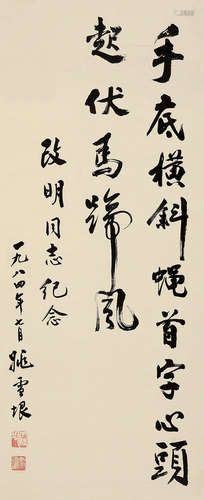 手底横斜蝇首字心头
起伏马蹄风
改明同志纪念
一九八四年七月姚雪垠